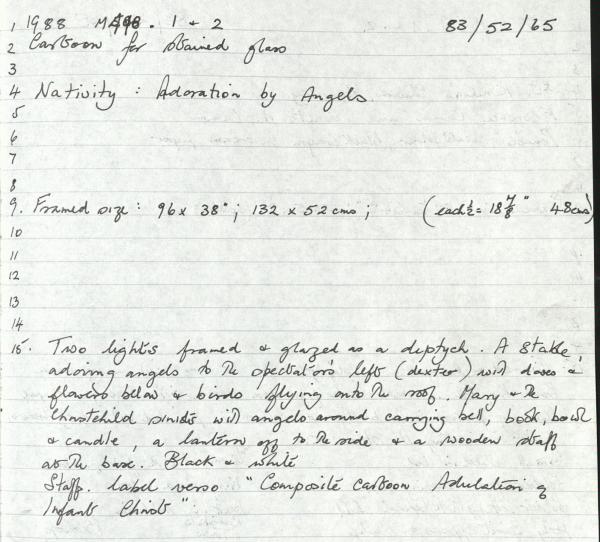 1 1988 M498. 1 & 2 83/52/65
2 Cartoon for stained glass
3
4 Nativity : Adoration by Angels
5
6
7
8
9. Framed size : 96 x 38" ; 132 x 52 cms ; (each ½ = 18 7/8" 48cms)
10
11
12
13
14
15. Two lights framed & glazed as a diptych. A stable,
adoring angels to the spectators left (dexter) with doves &
flowers below & birds flying onto the roof. Mary & the
Christchild sinister with angels around carrying bell, book, bowl
& candle, a lantern off to the side & a wooden staff
at the base. Black & white
Staff. label verso "Composite cartoon Adulation of
Infant Christ"